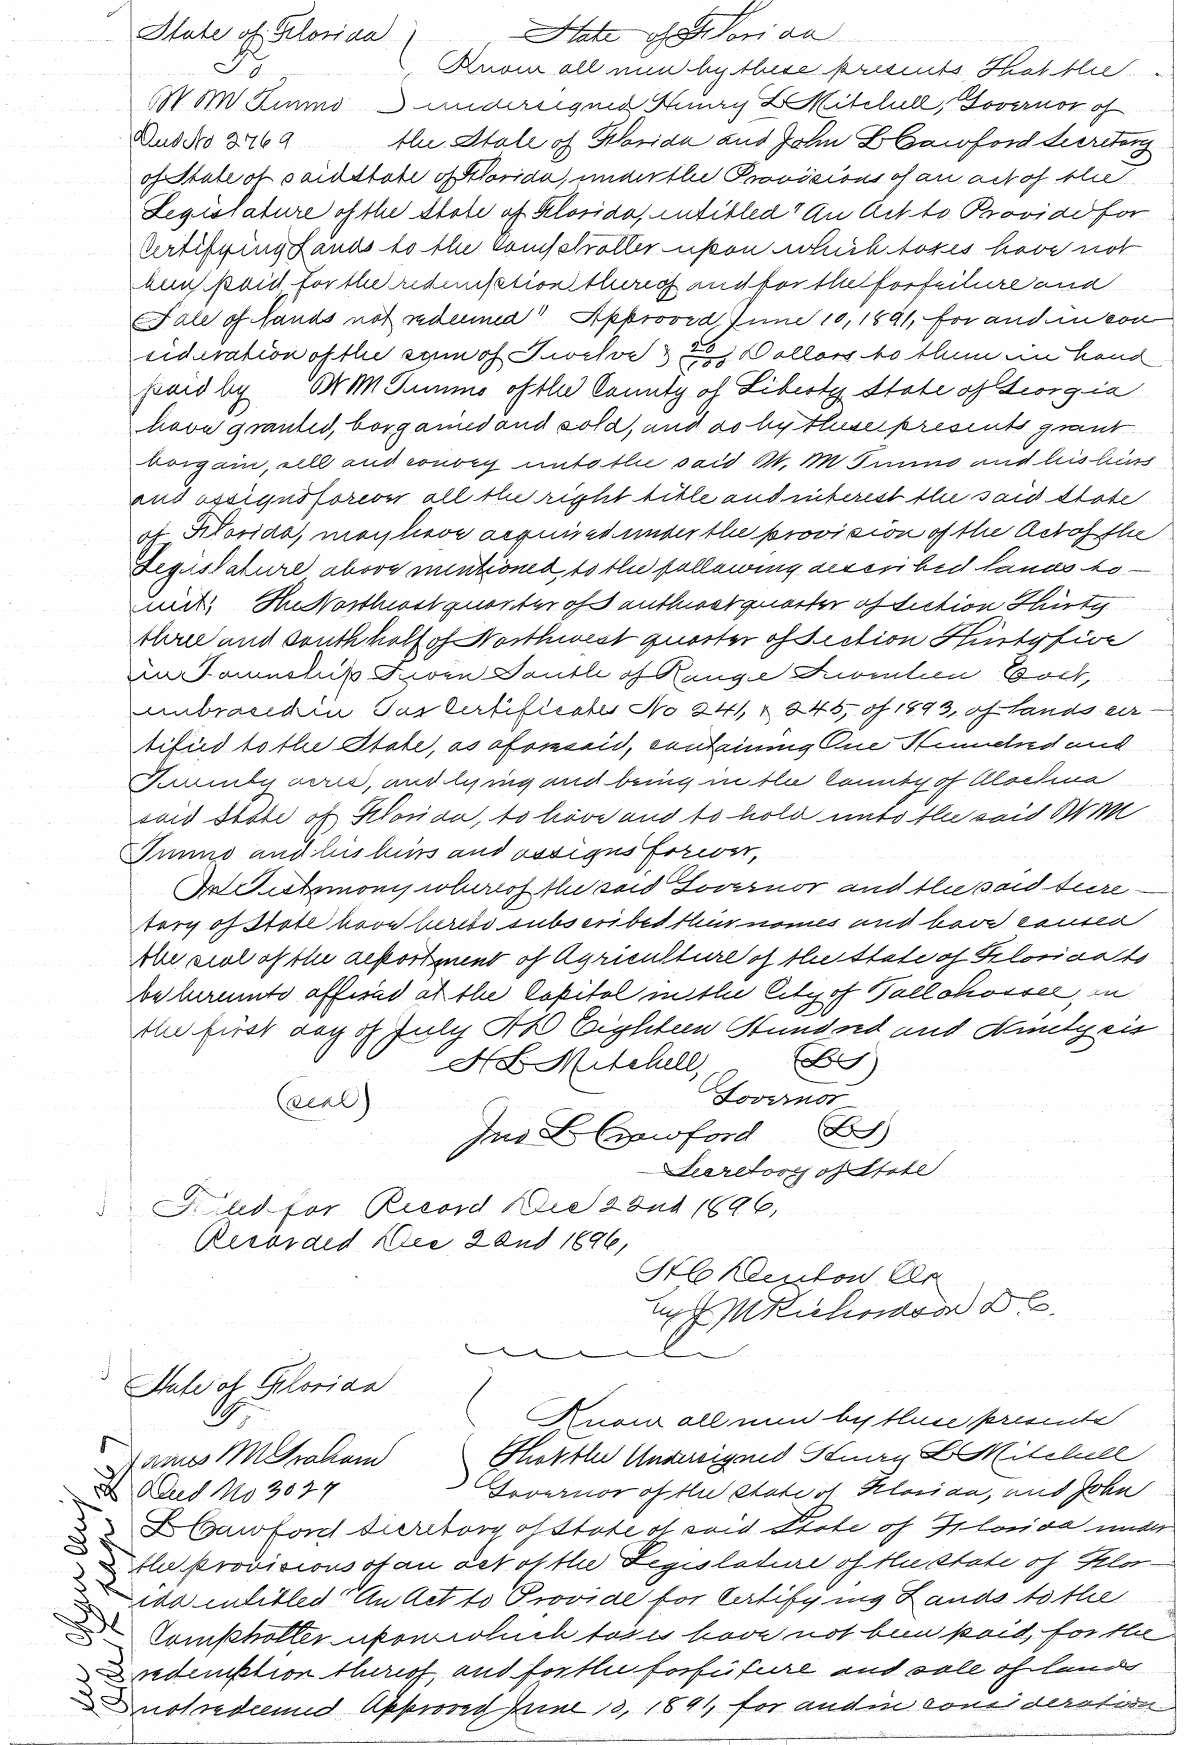 State of Florida State of Florida
To Know all men by these presents, That the
W M Timmo undersigned Henry L Mitchell, Governor of
Deed No 2769 the State of Florida and John L Crawford Secretary
of State of said State of Florida, under the Provisions of an act of the
Legislature of the State of Florida, entitled "An Act to Provide for
Certifying Lands to the Comptroller upon which taxes have not
been paid, for the redemption thereof and for the forfeiture and
Sale of lands not redeemed" Approved June 10, 1891, for and in con
sideration of the sum of Twelve & 20/100 Dollars to them in hand
paid by W M Timmo of the County of Liberty State of Georgia
have granted, bargained and sold, and do by these presents grant
bargain, sell and convey unto the said W. M Timmo and his heirs
and assigns forever all the right title and interest the said State
of Florida, may have acquired under the provision of the Act of the
Legislature above mentioned, to the following described lands to-
wit; The Northeast quarter of Southeast quarter of Section Thirty
three and South half of Northwest quarter of Section Thirty five
in Township Seven South of Range Seventeen East,
embraced in Tax Certificates No 241, & 245, of 1893, of lands cer-
tified to the State, as aforesaid, containing One Hundred and
Twenty acres, and lying and being in the County of Alachua
said State of Florida, to have and to hold unto the said W M
Timmo and his heirs and assigns forever,
In Testimony whereof the said Governor and the said Secre-
tary of State have hereto subscribed their names and have caused
the seal of the department of Agriculture of the State of Florida to
be hereunto affixed at the Capitol in the City of Tallahassee, on
the first day of July AD Eighteen Hundred and Ninety six
H L Mitchell, (LS)
(seal) Governor
Jno L Crawford (LS)
Secretary of State
Filed for Record Dec 22nd 1896,
Recorded Dec 22nd 1896,
H C Denton Clk
by J M Richardson D C.
State of Florida
To Know all men by these presents
James M Graham That the Undersigned Henry L Mitchell
Deed No 3027 Governor of the State of Florida, and John
L Crawford Secretary of State of said State of Florida under
the provisions of an act of the Legislature of the State of Flor-
ida entitled "An Act to Provide for Certifying Lands to the
Comptroller upon which taxes have not been paid, for the
redemption thereof, and for the forfeiture and sale of lands
not redeemed Approved June 10, 1891, for and in consideration
See
page 267